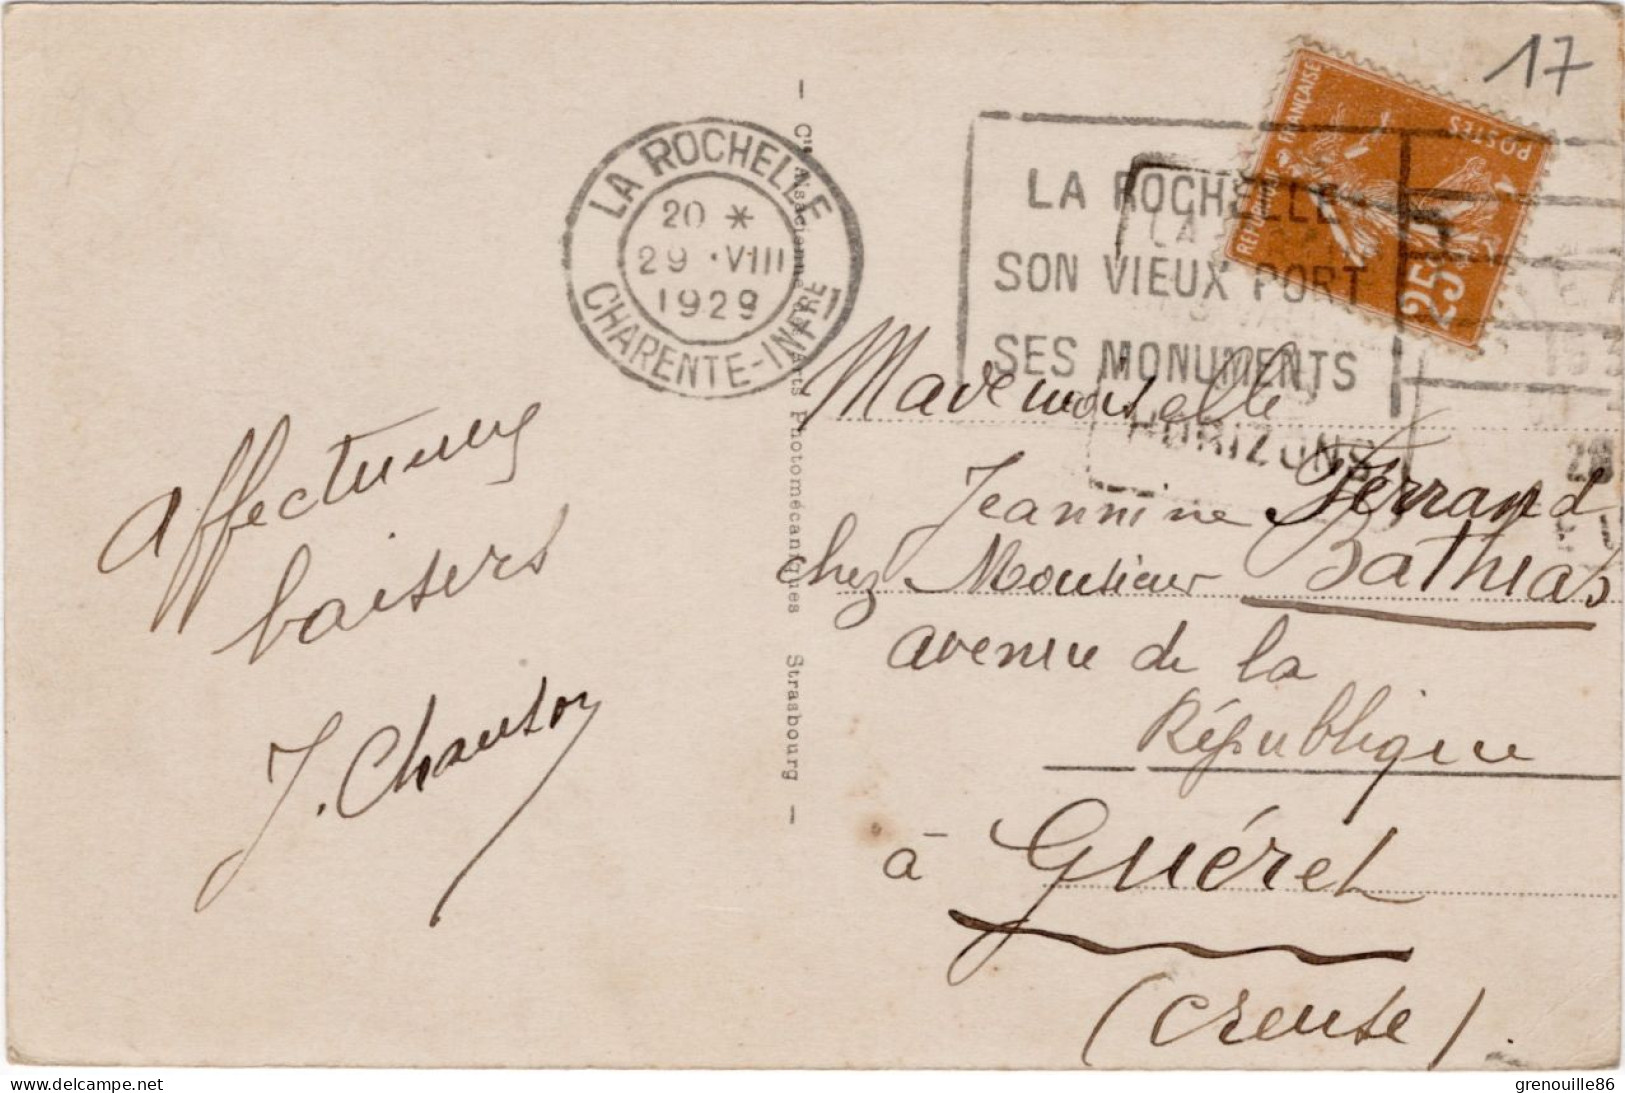 17
LA ROCHELLE
20 *
29 · VIII
1929
CHARENTE-INFRE
LA ROCHELLE
SON VIEUX PORT
SES MONUMENTS
HORIZONS
REPUBLIQUE FRANÇAISE
POSTES
25
— Cie Alsacienne des Arts Photomécaniques Strasbourg —
affectueux
baisers
J. Chanson
Mademoiselle
Jeannine Ferrand
chez Monsieur Bathias
avenue de la
République
à Guéret
(Creuse).
grenouille86